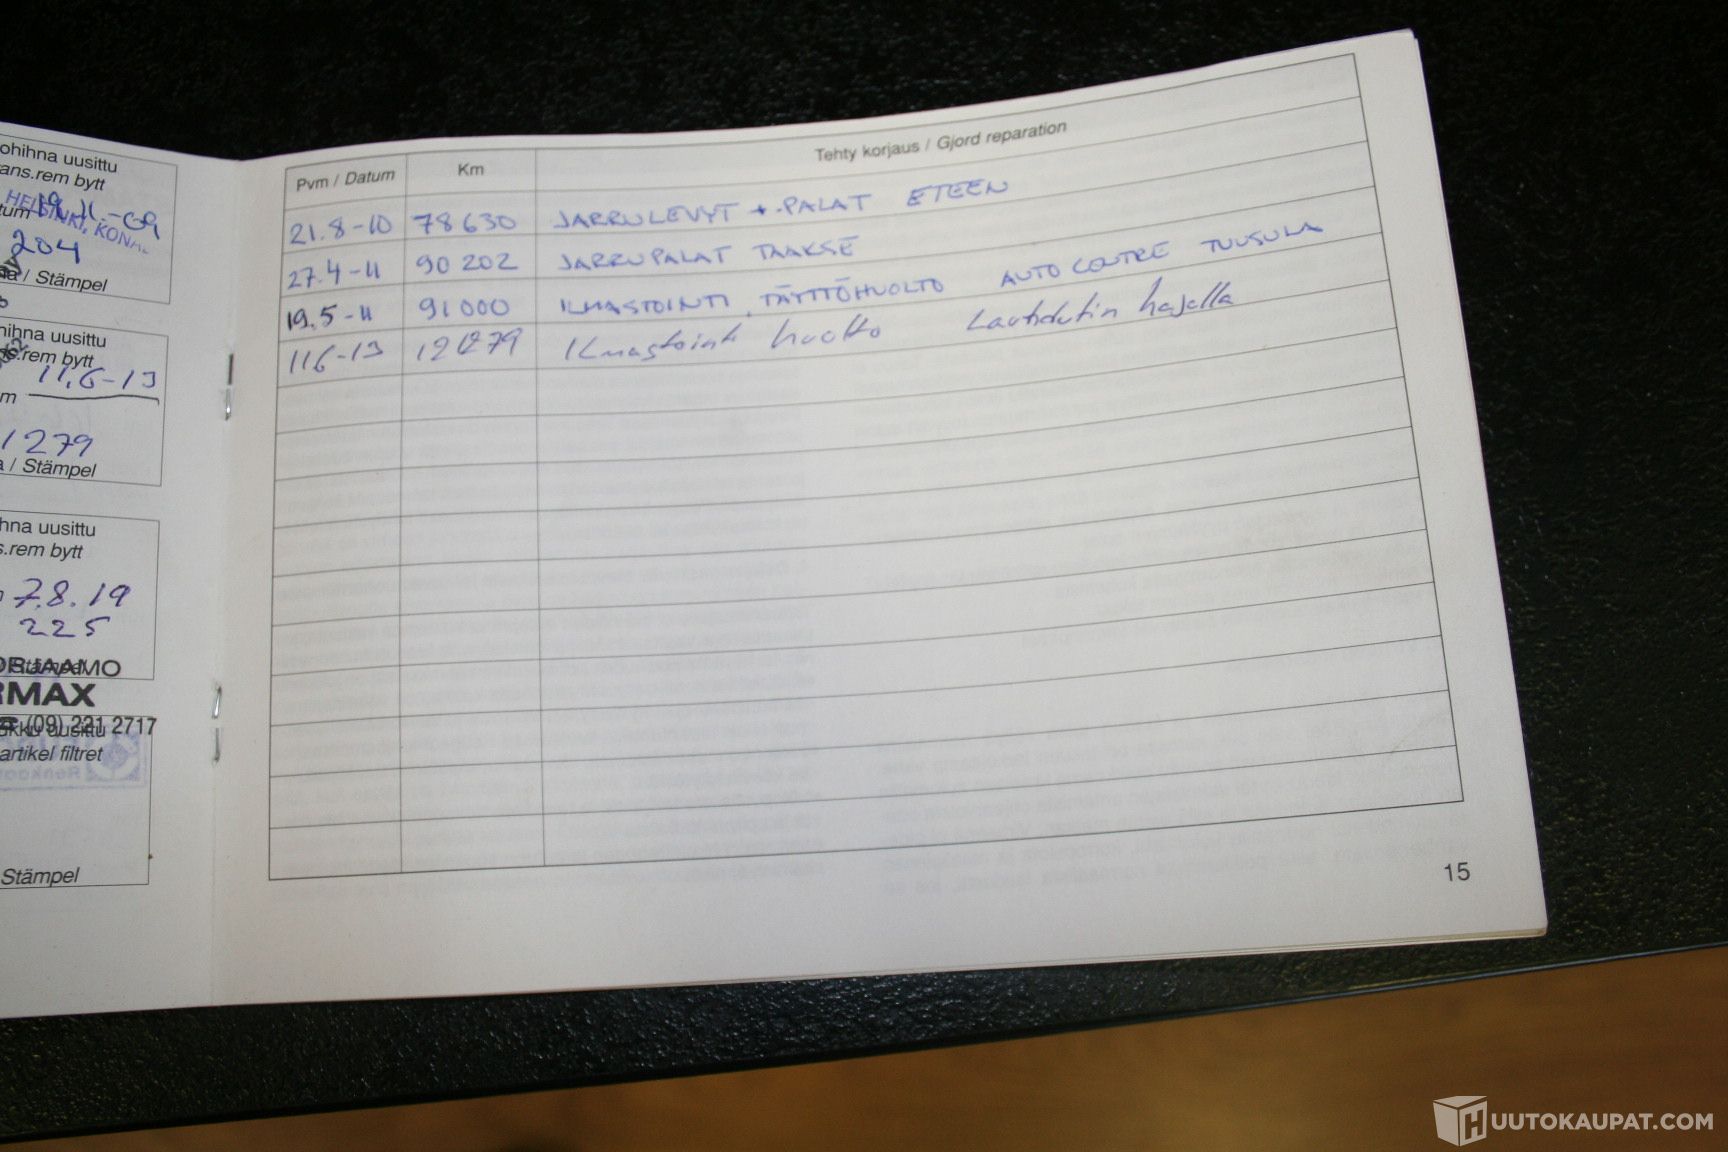 ohihna uusittu
ans.rem bytt
HELSINKI, KON
204
/ Stämpel
hihna uusittu
s.rem bytt
11.6-13
m
1279
a / Stämpel
hna uusittu
s.rem bytt
7.8.19
225
Stämpel
RMAX
(09) 221 2717
kku uusittu
artikel filtret
Stämpel
Pvm / Datum Km Tehty korjaus / Gjord reparation
21.8-10 78630 JARRULEVYT + PALAT ETEEN
27.4-11 90 202 JARRUPALAT TAAKSE
19.5-11 91000 ILMASTOINTI, TÄYTTÖHUOLTO AUTO CENTRE TUUSULA
116-13 121279 Ilmastoint huolto Lauhdutin hajalla
15
HUUTOKAUPAT.COM